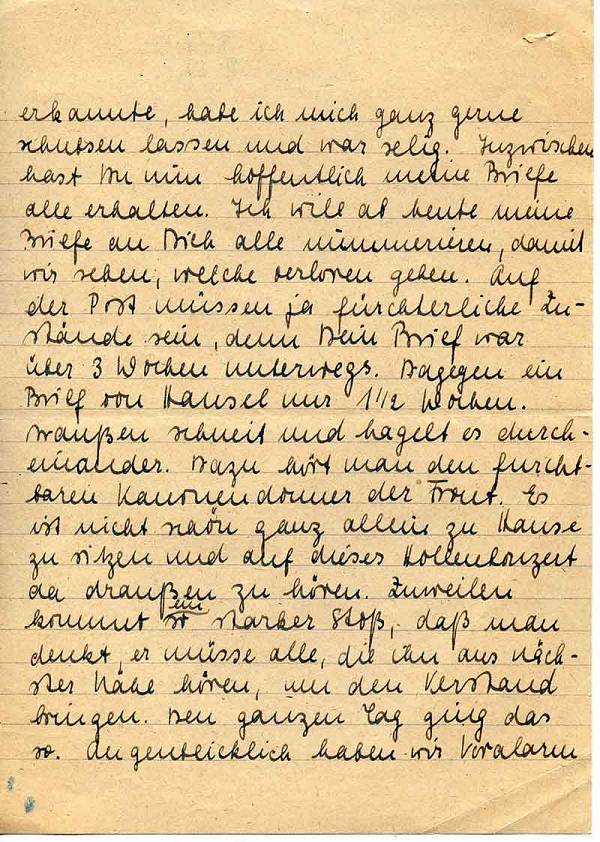 erkannte, habe ich mich ganz gerne
schubsen lassen und war selig. Inzwischen
hast Du nun hoffentlich meine Briefe
alle erhalten. Ich will ab heute meine
Briefe an Dich alle nummerieren, damit
wir sehen, welche verloren gehen. Auf
der Post müssen ja fürchterliche Zu-
stände sein, denn Dein Brief war
über 3 Wochen unterwegs. Dagegen ein
Brief von Hansel nur 1 1/2 Wochen.
Draußen schneit und hagelt es durch-
einander. Dazu hört man den furcht-
baren Kanonendonner der Front. Es
ist nicht schön ganz allein zu Hause
zu sitzen und auf dieses Höllenkonzert
da draußen zu hören. Zuweilen
kommt ein starker Stoß, daß man
denkt, er müsse alle, die ihn aus näch-
ster Nähe hören, um den Verstand
bringen. Den ganzen Tag ging das
so. Augenblicklich haben wir Voralarm